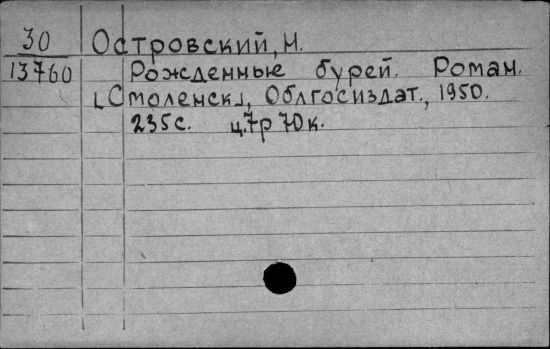 30 Островский, Н.
13760 Рожденные бурей. Роман.
[Смоленск], Облгосиздат., 1950.
235с. ц.7р 70к.